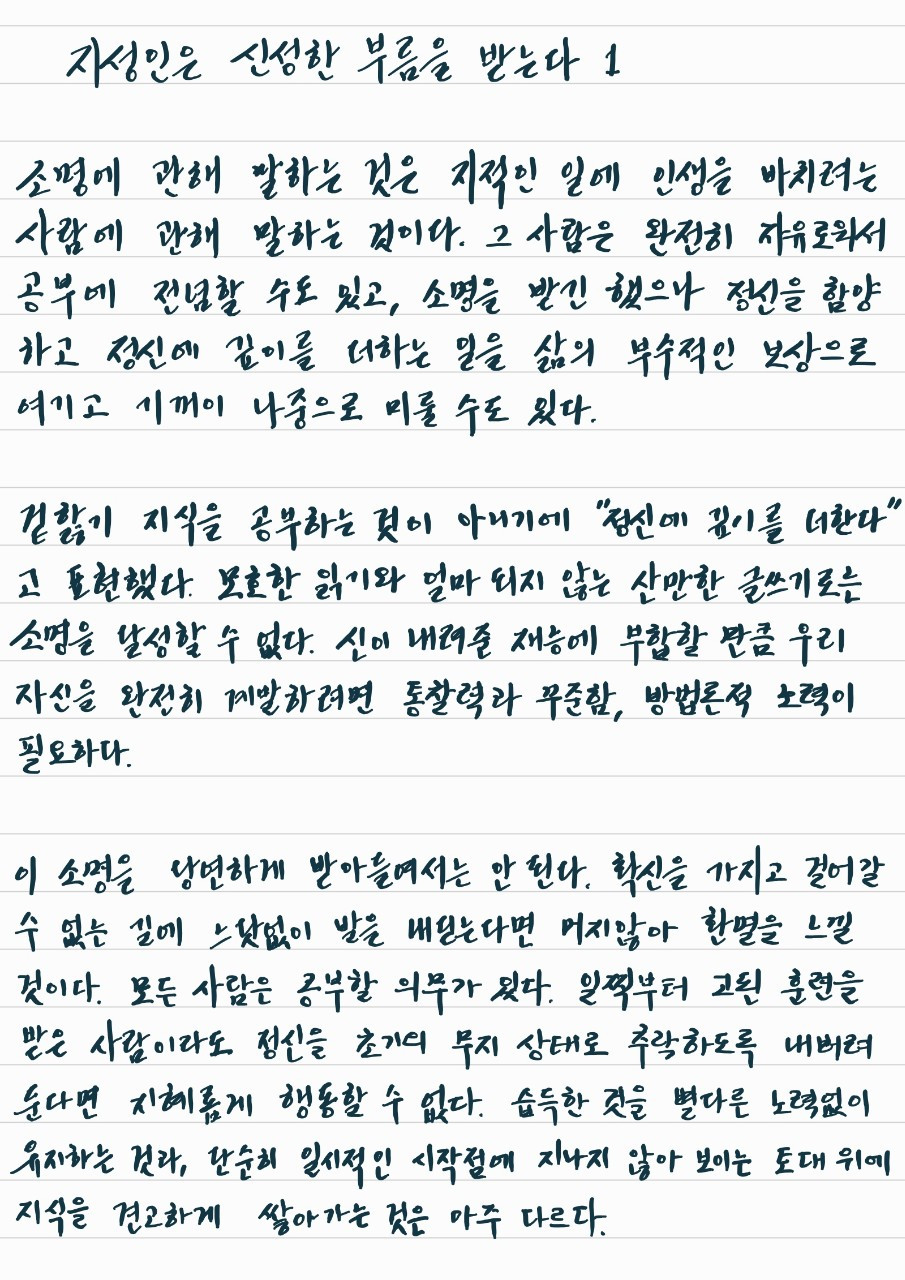 지성인은 신성한 부름을 받는다 1
소명에 관해 말하는 것은 지적인 일에 인생을 바치려는
사람에 관해 말하는 것이다. 그 사람은 완전히 자유로와서
공부에 전념할 수도 있고, 소명을 받긴 했으나 정신을 함양
하고 정신에 깊이를 더하는 일을 삶의 부수적인 보상으로
여기고 기꺼이 나중으로 미룰 수도 있다.
겉핥기 지식을 공부하는 것이 아니기에 "정신에 깊이를 더한다"
고 표현했다. 모호한 읽기와 얼마 되지 않는 산만한 글쓰기로는
소명을 달성할 수 없다. 신이 내려준 재능에 부합할 만큼 우리
자신을 완전히 계발하려면 통찰력과 꾸준함, 방법론적 노력이
필요하다.
이 소명을 당연하게 받아들여서는 안 된다. 확신을 가지고 걸어갈
수 없는 길에 느닷없이 발을 내딛는다면 머지않아 환멸을 느낄
것이다. 모든 사람은 공부할 의무가 있다. 일찍부터 고된 훈련을
받은 사람이라도 정신을 초기의 무지 상태로 추락하도록 내버려
둔다면 지혜롭게 행동할 수 없다. 습득한 것을 별다른 노력없이
유지하는 것과, 단순히 일시적인 시작점에 지나지 않아 보이는 토대 위에
지식을 견고하게 쌓아가는 것은 아주 다르다.